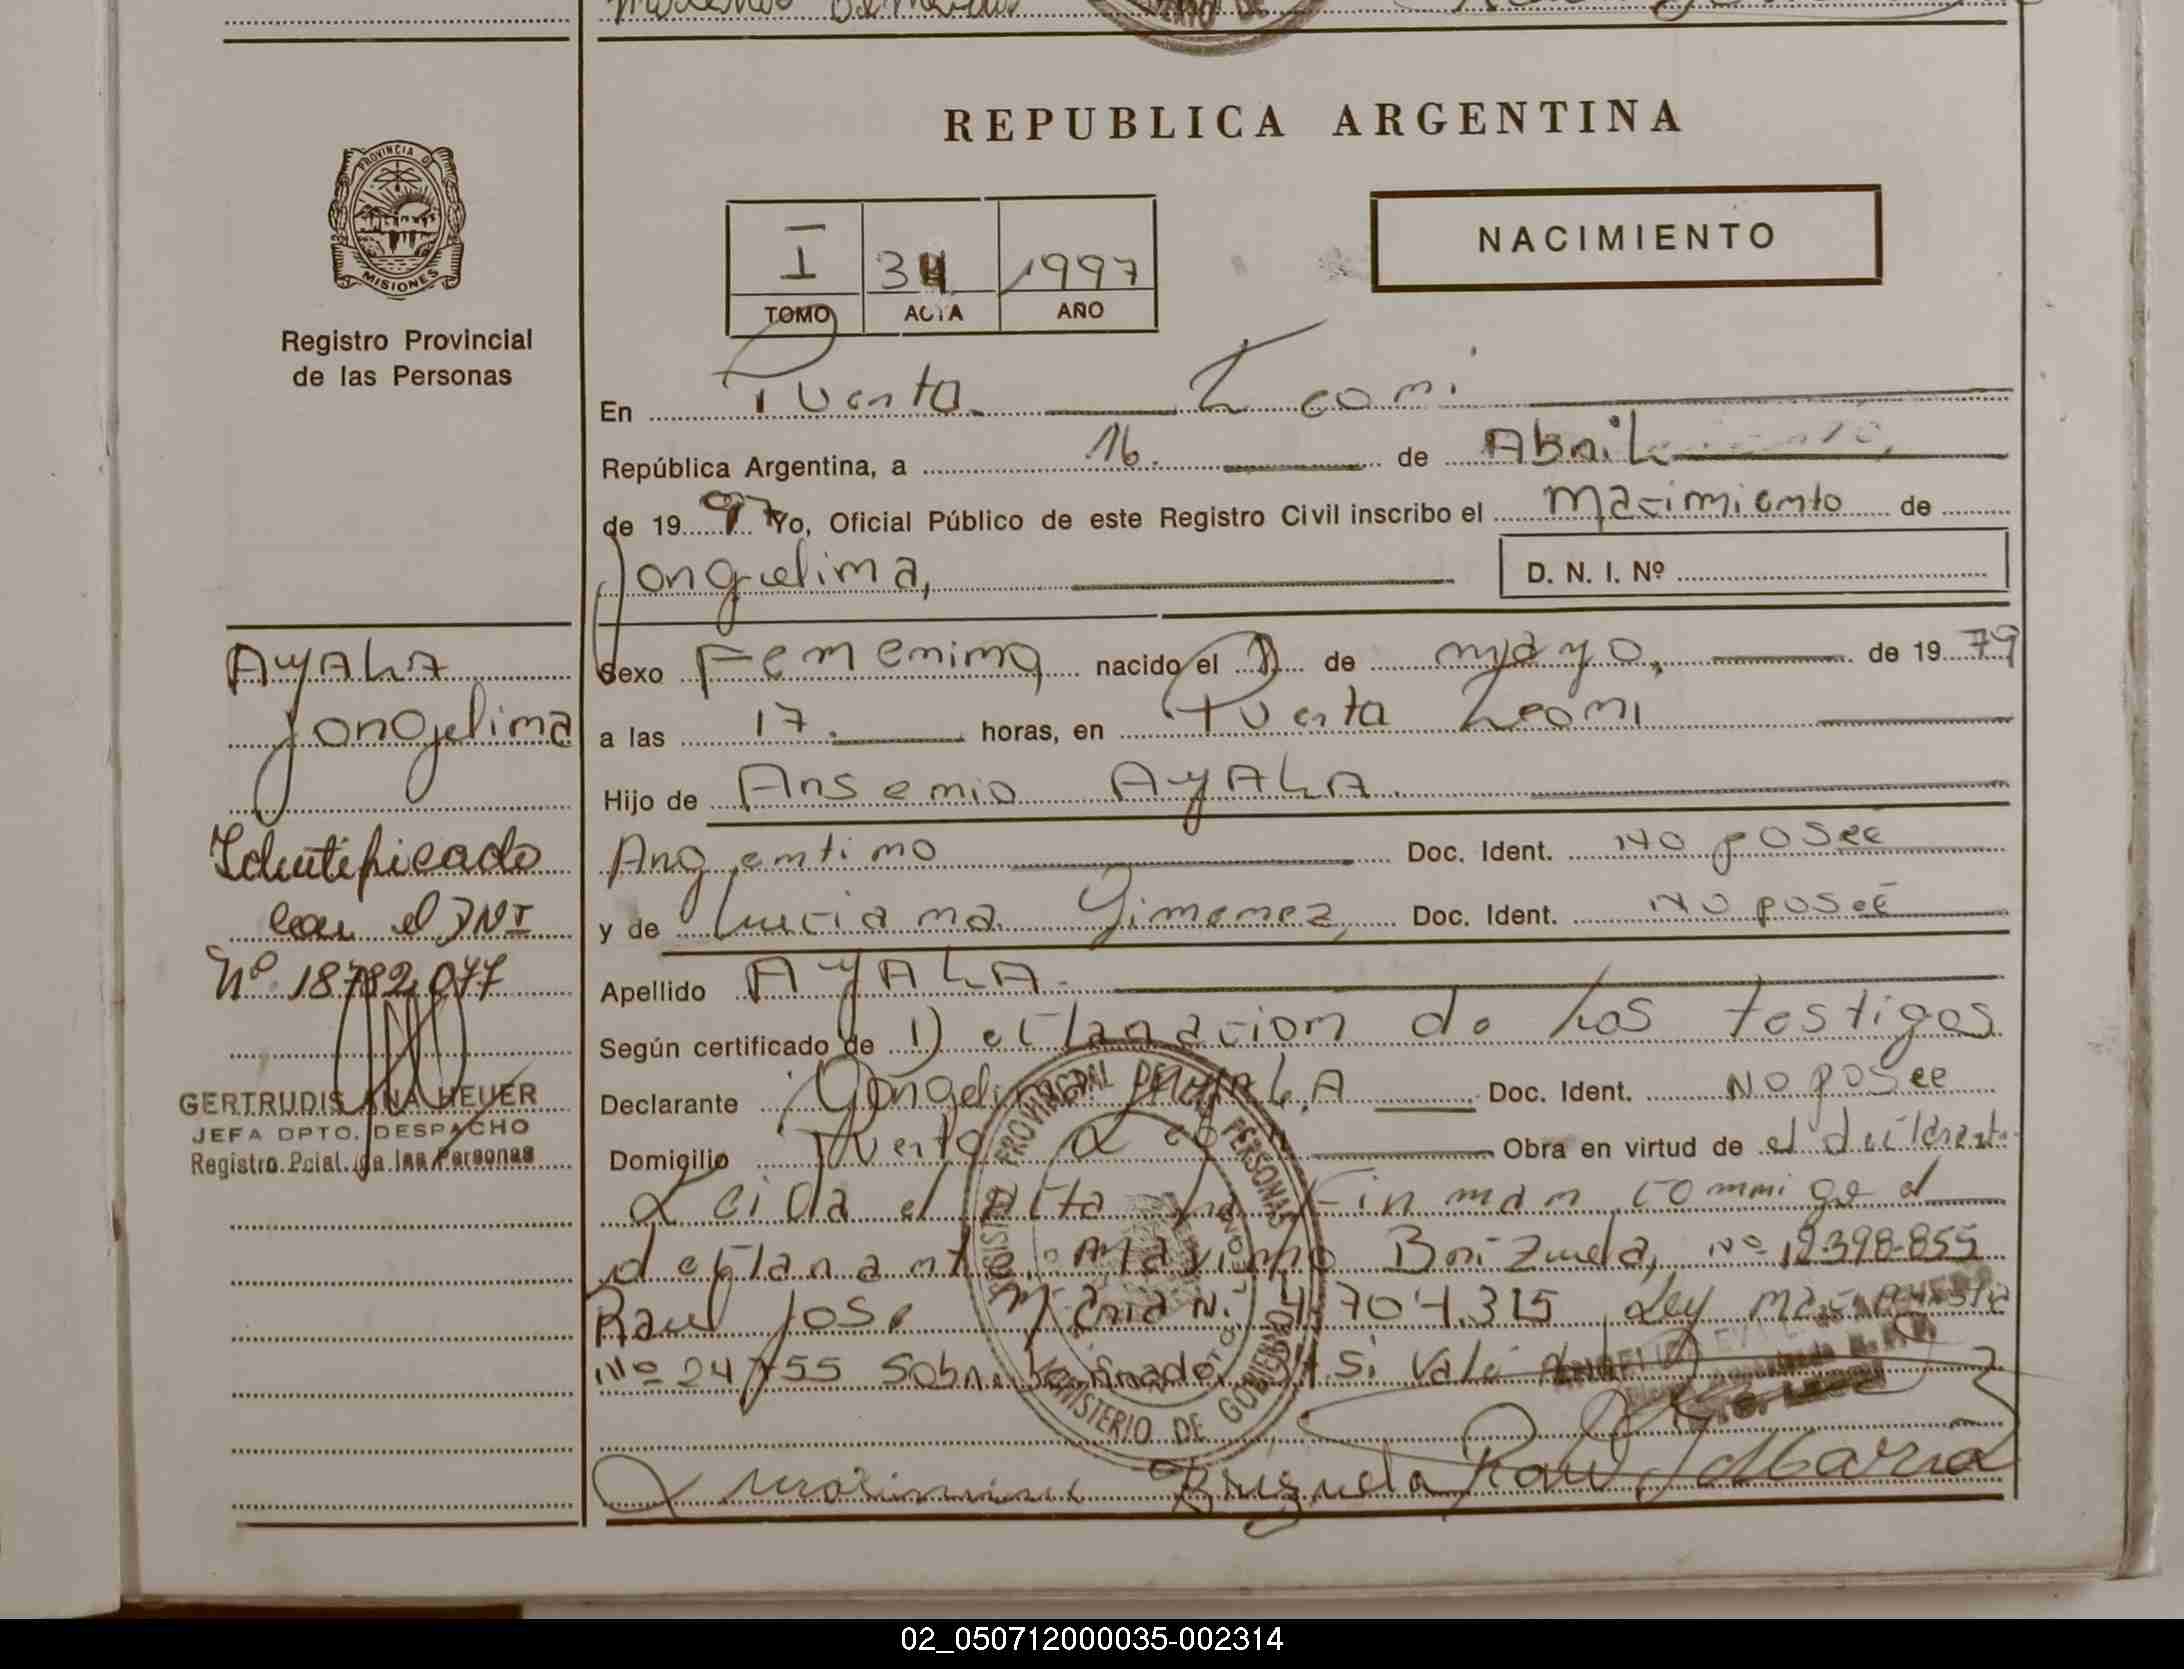 REPUBLICA ARGENTINA
PROVINCIA D
MISIONES
Registro Provincial
de las Personas
I 34 1997
TOMO ACTA AÑO
NACIMIENTO
En Puerto Leoni
República Argentina, a 16. de Abril
de 1997 Yo, Oficial Público de este Registro Civil inscribo el Nacimiento de
Jongelina,
D. N. I. Nº
AYALA
Jongelina
Identificado
con el DNI
Nº 18782077
GERTRUDIS ANA HEUER
JEFA DPTO. DESPACHO
Registro Pcial. de las Personas
Sexo Femenino nacido el 1 de mayo, de 1979
a las 17. horas, en Puerto Leoni
Hijo de Ansemio AYALA.
Argentino Doc. Ident. No posee
y de Luciana Gimenez, Doc. Ident. No poseé
Apellido AYALA.
Según certificado de Declaracion de Los testigos
Declarante Jongelina AYALA Doc. Ident. No posee
Domicilio Puerto Leoni Obra en virtud de el declarante
Leida el Acta La Firman conmigo el
declarante, Maximo Brizuela, Nº 12.398.855
Raul Jose Maria N. 4.704.315 Ley
Nº 24755 Sobre 34 Si Vale
Brizuela Raul J Maria
02_050712000035-002314